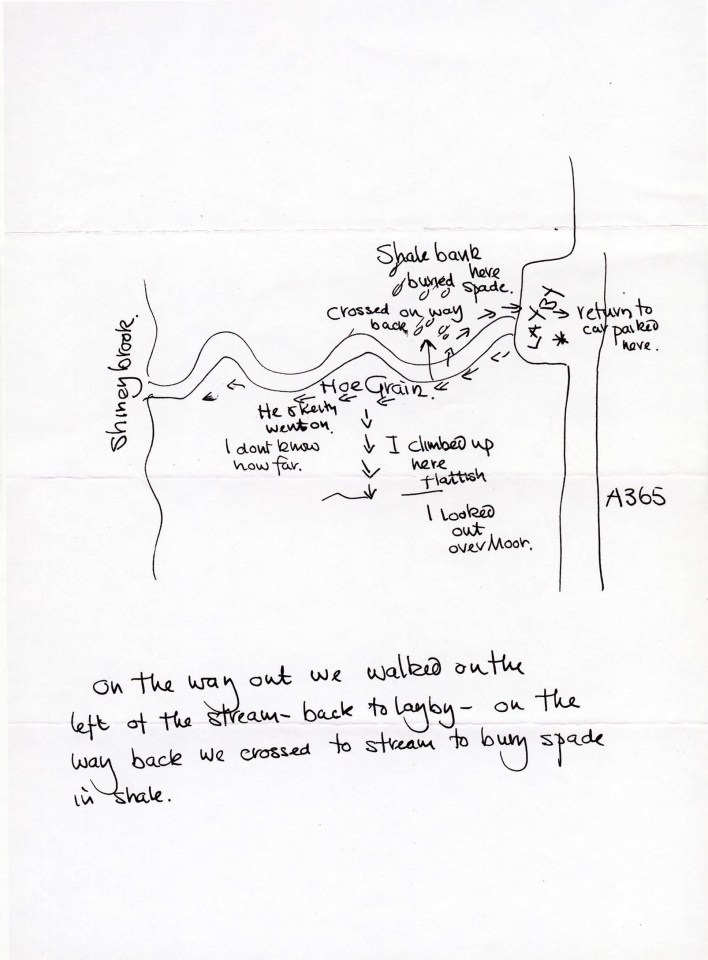 Shale bank
buried here
spade.
Crossed on way
back
return to
car parked
here.
Shiney brook.
Hoe Grain.
He & Keith
went on.
I dont know
how far.
I climbed up
here
flattish
I looked
out
over Moor.
A365
On the way out we walked on the
left of the stream - back to layby - on the
way back we crossed to stream to bury spade
in shale.